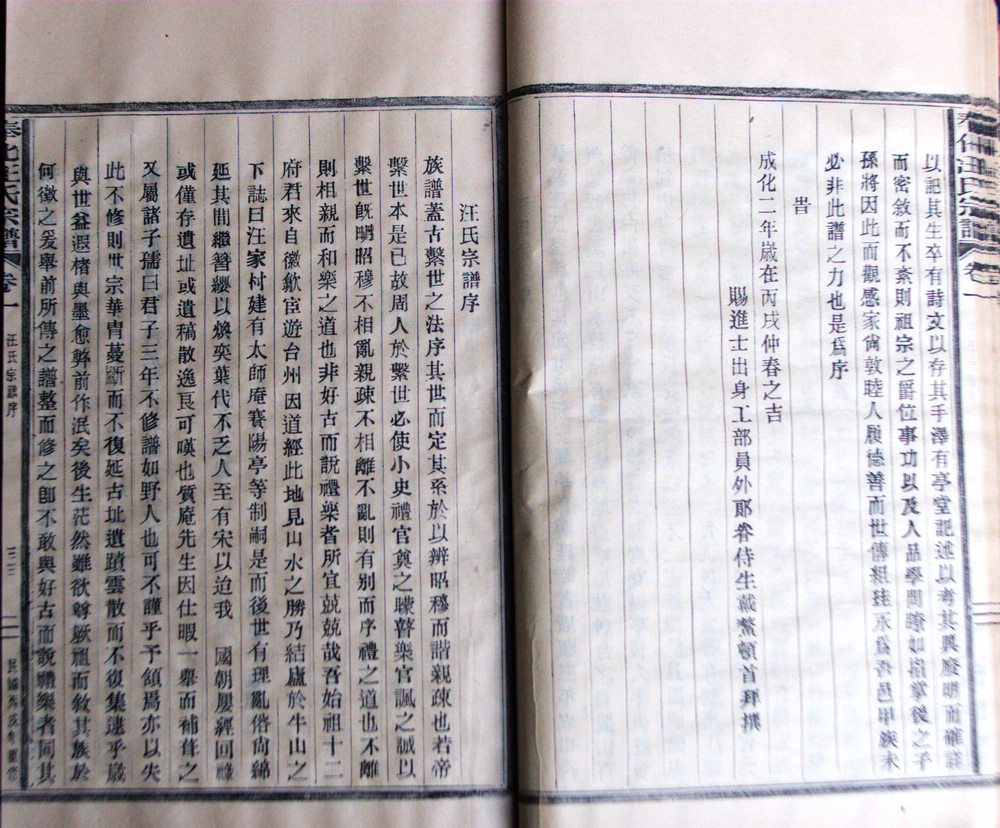 以記其生卒有詩文以存其手澤有亭堂記述以考其興廢明而確詳
而密敘而不紊則祖宗之爵位事功以及人品學問瞭如指掌後之子
孫將因此而觀感家尚敦睦人履德善而世傳組珪永爲吾邑甲族未
必非此譜之力也是爲序
旹
成化二年歲在丙戌仲春之吉
賜進士出身工部員外郎眷侍生戴鰲頓首拜撰
汪氏宗譜序
族譜蓋古繫世之法序其世而定其系於以辨昭穆而諧親疎也若帝
繫世本是已故周人於繫世必使小史禮官奠之矇瞽樂官諷之誠以
繫世旣明昭穆不相亂親疎不相離不亂則有別而序禮之道也不離
則相親而和樂之道也非好古而說禮樂者所宜兢兢哉吾始祖十二
府君來自徽歙宦遊台州因道經此地見山水之勝乃結廬於牛山之
下誌曰汪家村建有太師庵賽陽亭等制嗣是而後世有理亂俗尚綿
延其間繼簪纓以煥奕葉代不乏人至有宋以迨我 國朝屢經回祿
或僅存遺址或遺稿散逸良可嘆也質庵先生因仕暇一舉而補葺之
又屬諸子孺曰君子三年不修譜如野人也可不謹乎予頷焉亦以失
此不修則世宗華胄蔓斷而不復延古址遺蹟雲散而不復集逮乎歲
與世益遐楮與墨愈弊前作泯矣後生茫然雖欲尊厥祖而敘其族於
何徵之爰舉前所傳之譜整而修之卽不敢與好古而說禮樂者同其
奉化汪氏宗譜 卷一 汪氏宗譜序